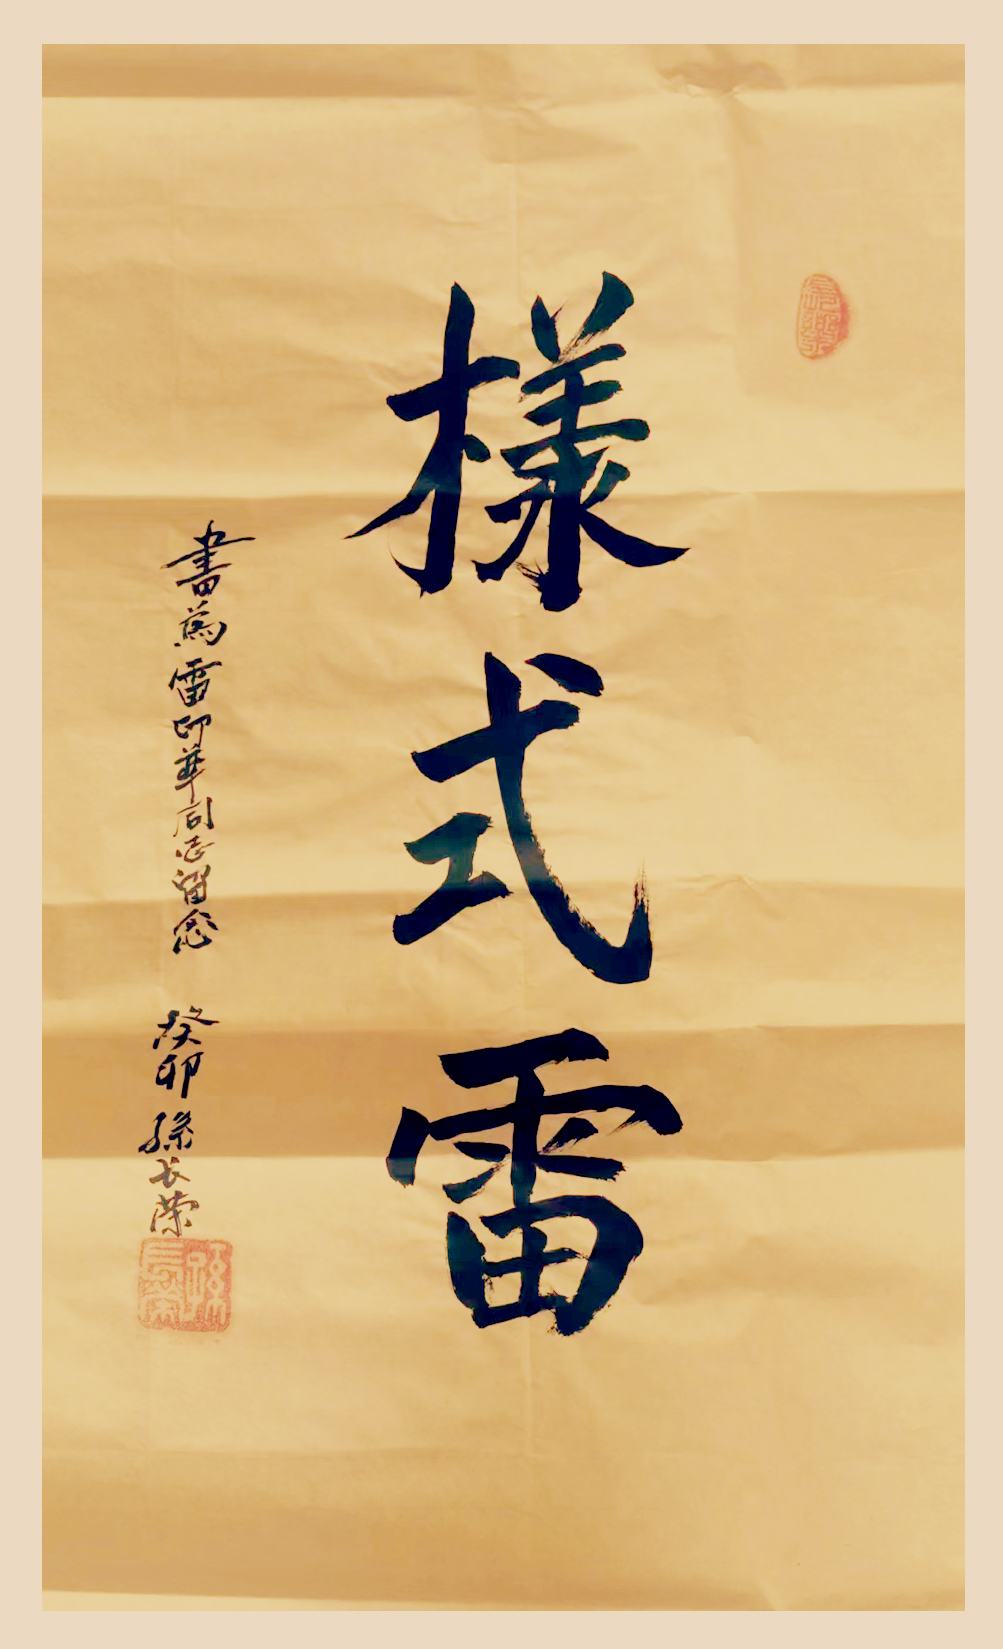 樣式雷
書爲雷印華同志留念
癸卯 孫长榮
孫長榮